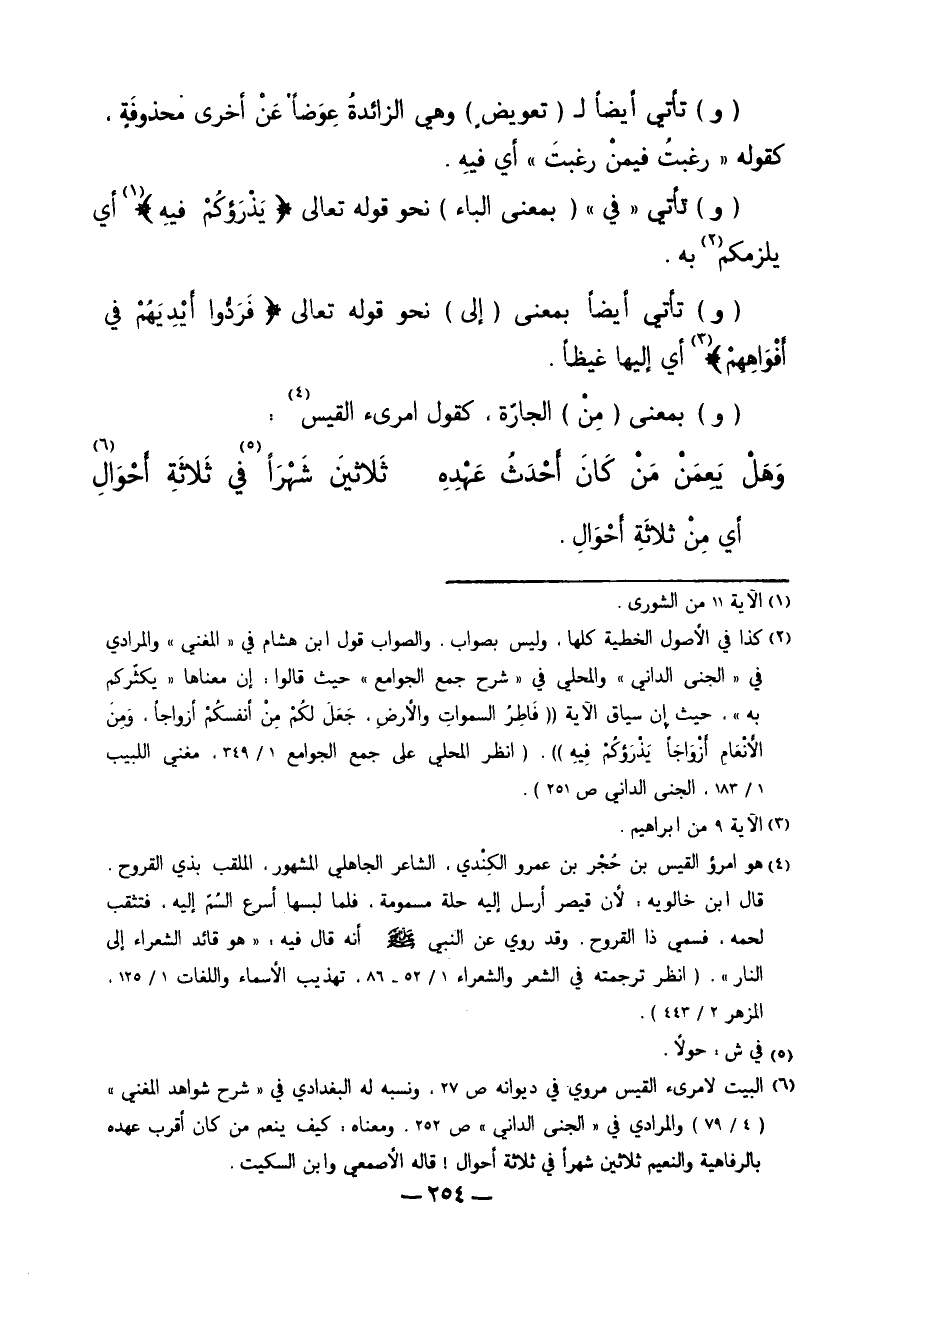 ( و ) تأتي أيضاً لـ ( تعويضٍ ) وهي الزائدةُ عِوَضاً عَنْ أخرى محذوفَةٍ ،
كقوله « رغبتُ فيمنْ رغبتَ » أي فيهِ .
( و ) تأتي « في » ( بمعنى الباء ) نحو قوله تعالى ﴿ يَذْرَؤكُمْ فيهِ ﴾(١) أي
يلزمكم(٢) به .
( و ) تأتي أيضاً بمعنى ( إلى ) نحو قوله تعالى ﴿ فَرَدُّوا أيْدِيَهُمْ في
أفْوَاهِهِمْ ﴾(٣) أي إليها غيظاً .
( و ) بمعنى ( مِنْ ) الجارّة ، كقول امرىء القيس(٤) :
وَهَلْ يَعِمَنْ مَنْ كَانَ أَحْدَثُ عَهْدِهِ ثَلاثينَ شَهْرَاً(٥) في ثَلاثَةِ أَحْوَالِ(٦)
أي مِنْ ثلاثَةِ أَحْوَالِ .
(١) الآية ١١ من الشورى .
(٢) كذا في الأصول الخطية كلها ، وليس بصواب . والصواب قول ابن هشام في « المغني » والمرادي
في « الجنى الداني » والمحلي في « شرح جمع الجوامع » حيث قالوا : إن معناها « يكثّركم
به » ، حيث إن سياق الآية (( فَاطِرُ السموات والأرضِ ، جَعَلَ لكُمْ مِنْ أنفسكُمْ أزواجاً ، وَمِنَ
الأنْعَامِ أَزْوَاجَاً يَذْرَؤكُمْ فِيهِ )) . ( انظر المحلي على جمع الجوامع ١ / ٣٤٩ ، مغني اللبيب
١ / ١٨٣ ، الجنى الداني ص ٢٥١ ) .
(٣) الآية ٩ من ابراهيم .
(٤) هو امرؤ القيس بن حُجْر بن عمرو الكِنْدي ، الشاعر الجاهلي المشهور ، الملقب بذي القروح .
قال ابن خالويه : لأن قيصر أرسل إليه حلة مسمومة ، فلما لبسها أسرع السُمّ إليه ، فتثقب
لحمه ، فسمي ذا القروح . وقد روي عن النبي ﷺ أنه قال فيه : « هو قائد الشعراء إلى
النار » . ( انظر ترجمته في الشعر والشعراء ١ / ٥٢ ـ ٨٦ ، تهذيب الأسماء واللغات ١ / ١٢٥ ،
المزهر ٢ / ٤٤٣ ) .
(٥) في ش : حولاً .
(٦) البيت لامرىء القيس مروي في ديوانه ص ٢٧ ، ونسبه له البغدادي في « شرح شواهد المغني »
( ٤ / ٧٩ ) والمرادي في « الجنى الداني » ص ٢٥٢ . ومعناه : كيف ينعم من كان أقرب عهده
بالرفاهية والنعيم ثلاثين شهراً في ثلاثة أحوال ! قاله الأصمعي وابن السكيت .
— ٢٥٤ —